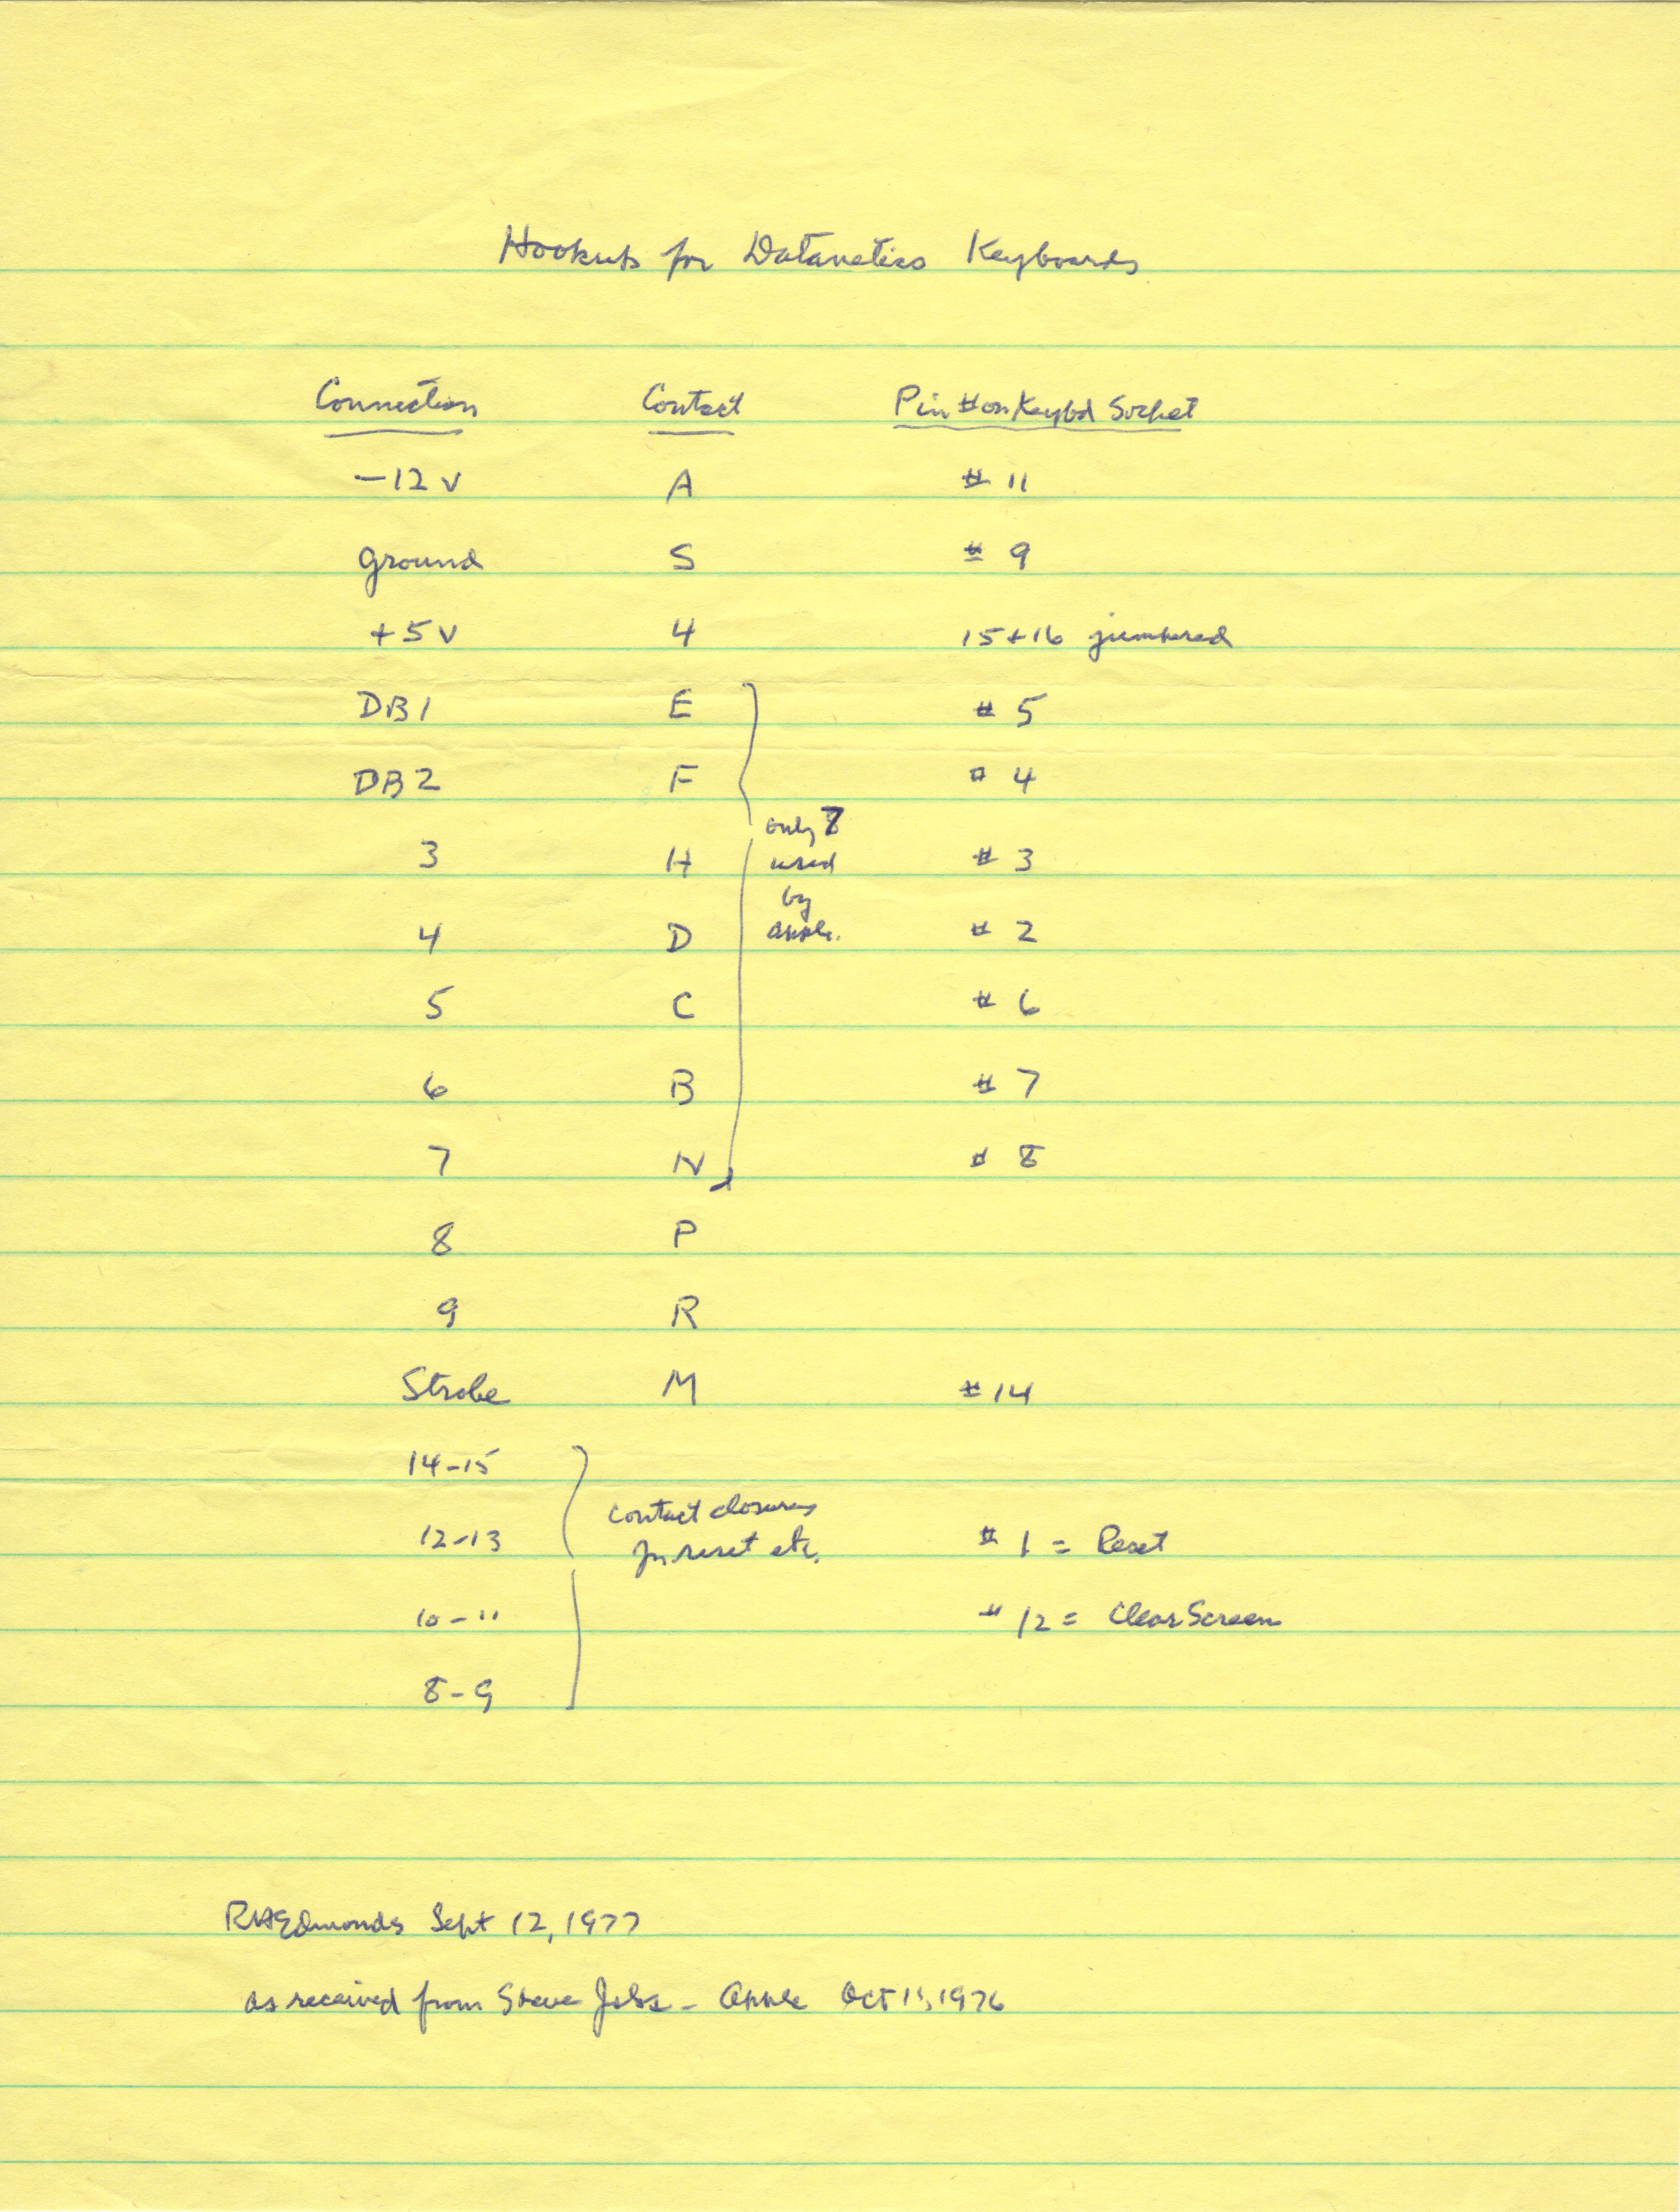 Hookups for Datanetics Keyboards
Connection Contact Pin # on Keybd Socket
-12 v A # 11
ground S # 9
+5 v 4 15+16 jumpered
DB1 E # 5
DB2 F # 4
only 7
3 H used # 3
by
4 D apple. # 2
5 C # 6
6 B # 7
7 N # 8
8 P
9 R
Strobe M # 14
14-15
contact closures
12-13 for reset etc. # 1 = Reset
10-11 # 12 = Clear Screen
8-9
RHEdmonds Sept 12, 1977
as received from Steve Jobs - Apple Oct 1976